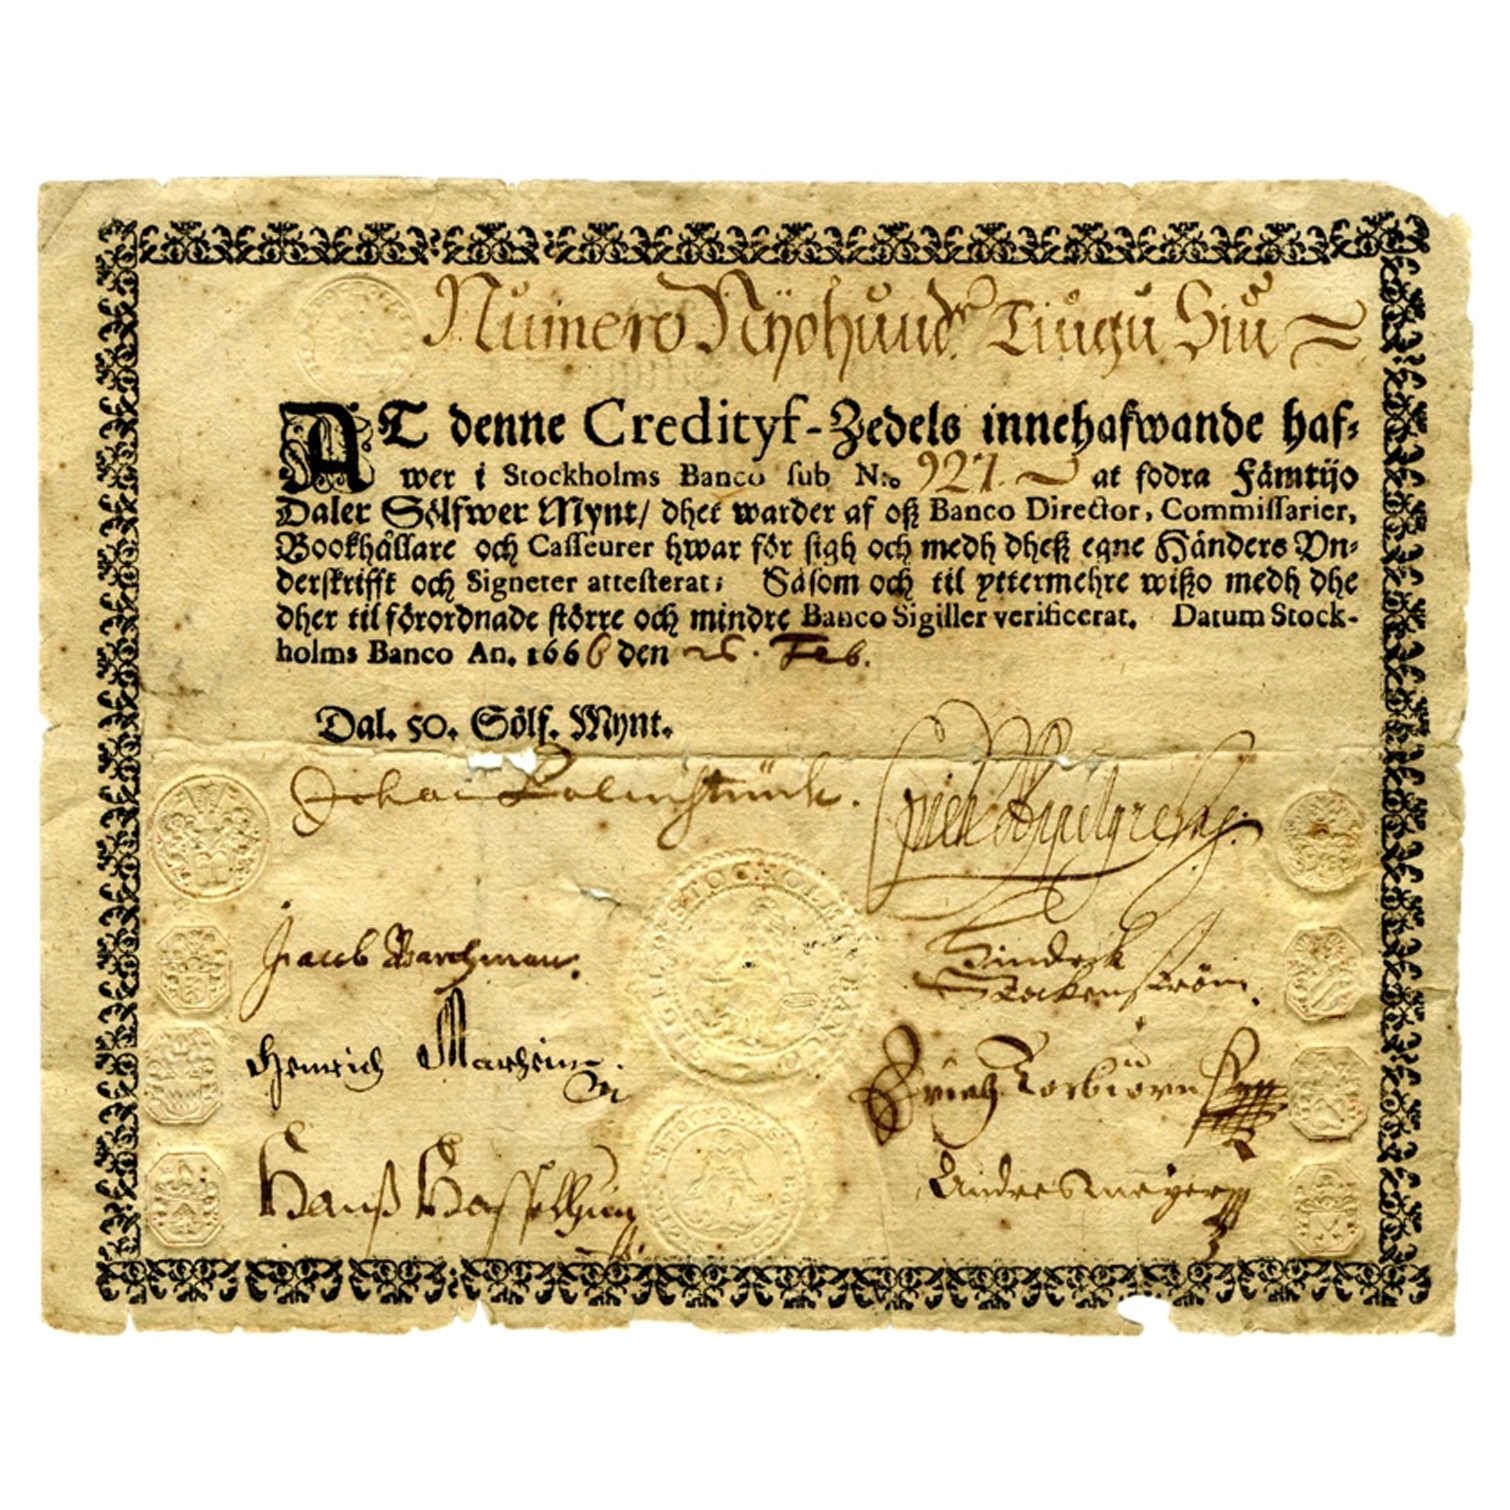 Numero Nijohundr Tiugu Siu
AT denne Credityf-Zedels innehafwande haf-
wer i Stockholms Banco sub N:o 927. at fodra Fämtijo
Daler Sölfwer Mynt/ dhet warder af oß Banco Director, Commissarier,
Bookhållare och Casseurer hwar för sigh och medh dheß egne Händers Vn-
derskrifft och Signeter attesterat; Såsom och til yttermehre wißo medh dhe
dher til förordnade större och mindre Banco Sigiller verificerat. Datum Stock-
holms Banco An. 1666 den 26. Feb.
Dal. 50. Sölf. Mynt.
Johan
Jacob
Hindrick
Stockenström
Henrich
Erich Torbiörn
Hanß
Anders Meijer
STOCHOLMS BANCO